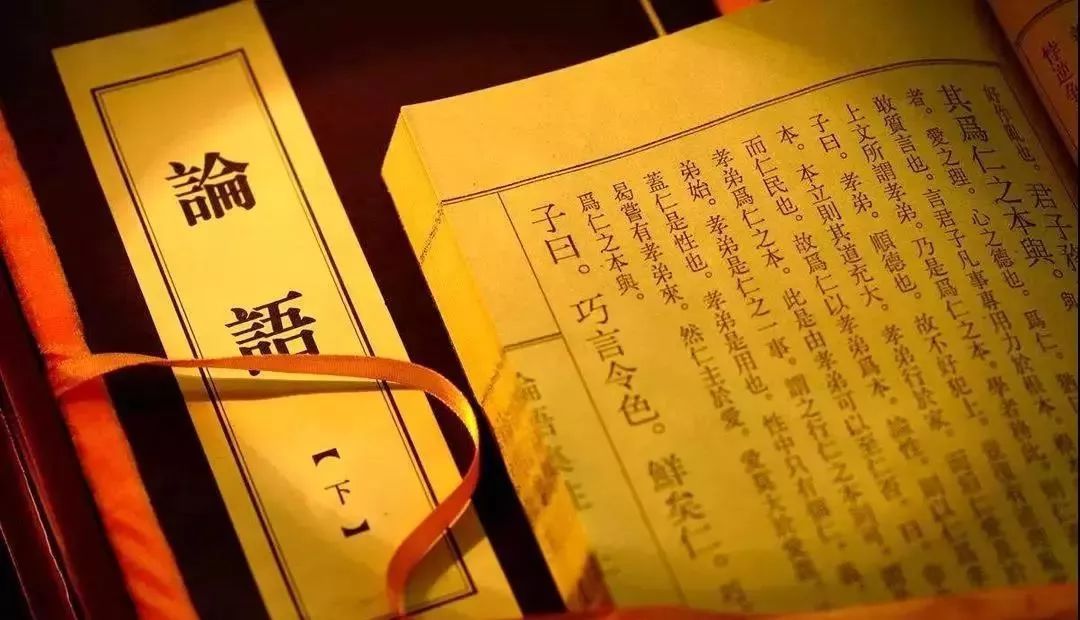 悖逆爭
好作亂也。君子務
其爲仁之本與。與
者。愛之理。心之德也。爲仁。猶
敢質言也。言君子凡事專用力於根本。
上文所謂孝弟。乃是爲仁之本。學者務此。
子曰。孝弟。順德也。故不好犯上。豈復有逆理
本。本立則其道充大。孝弟行於家。而後仁愛
而仁民也。故爲仁以孝弟爲本。論性。則以仁爲孝
孝弟爲仁之本。此是由孝弟可以至仁否。曰。
弟始。孝弟是仁之一事。謂之行仁之本則可。
蓋仁是性也。孝弟是用也。性中只有箇仁。義。
曷嘗有孝弟來。然仁主於愛。愛莫大於愛親
爲仁之本與。
子曰。巧言令色。鮮矣仁。
論語
【下】